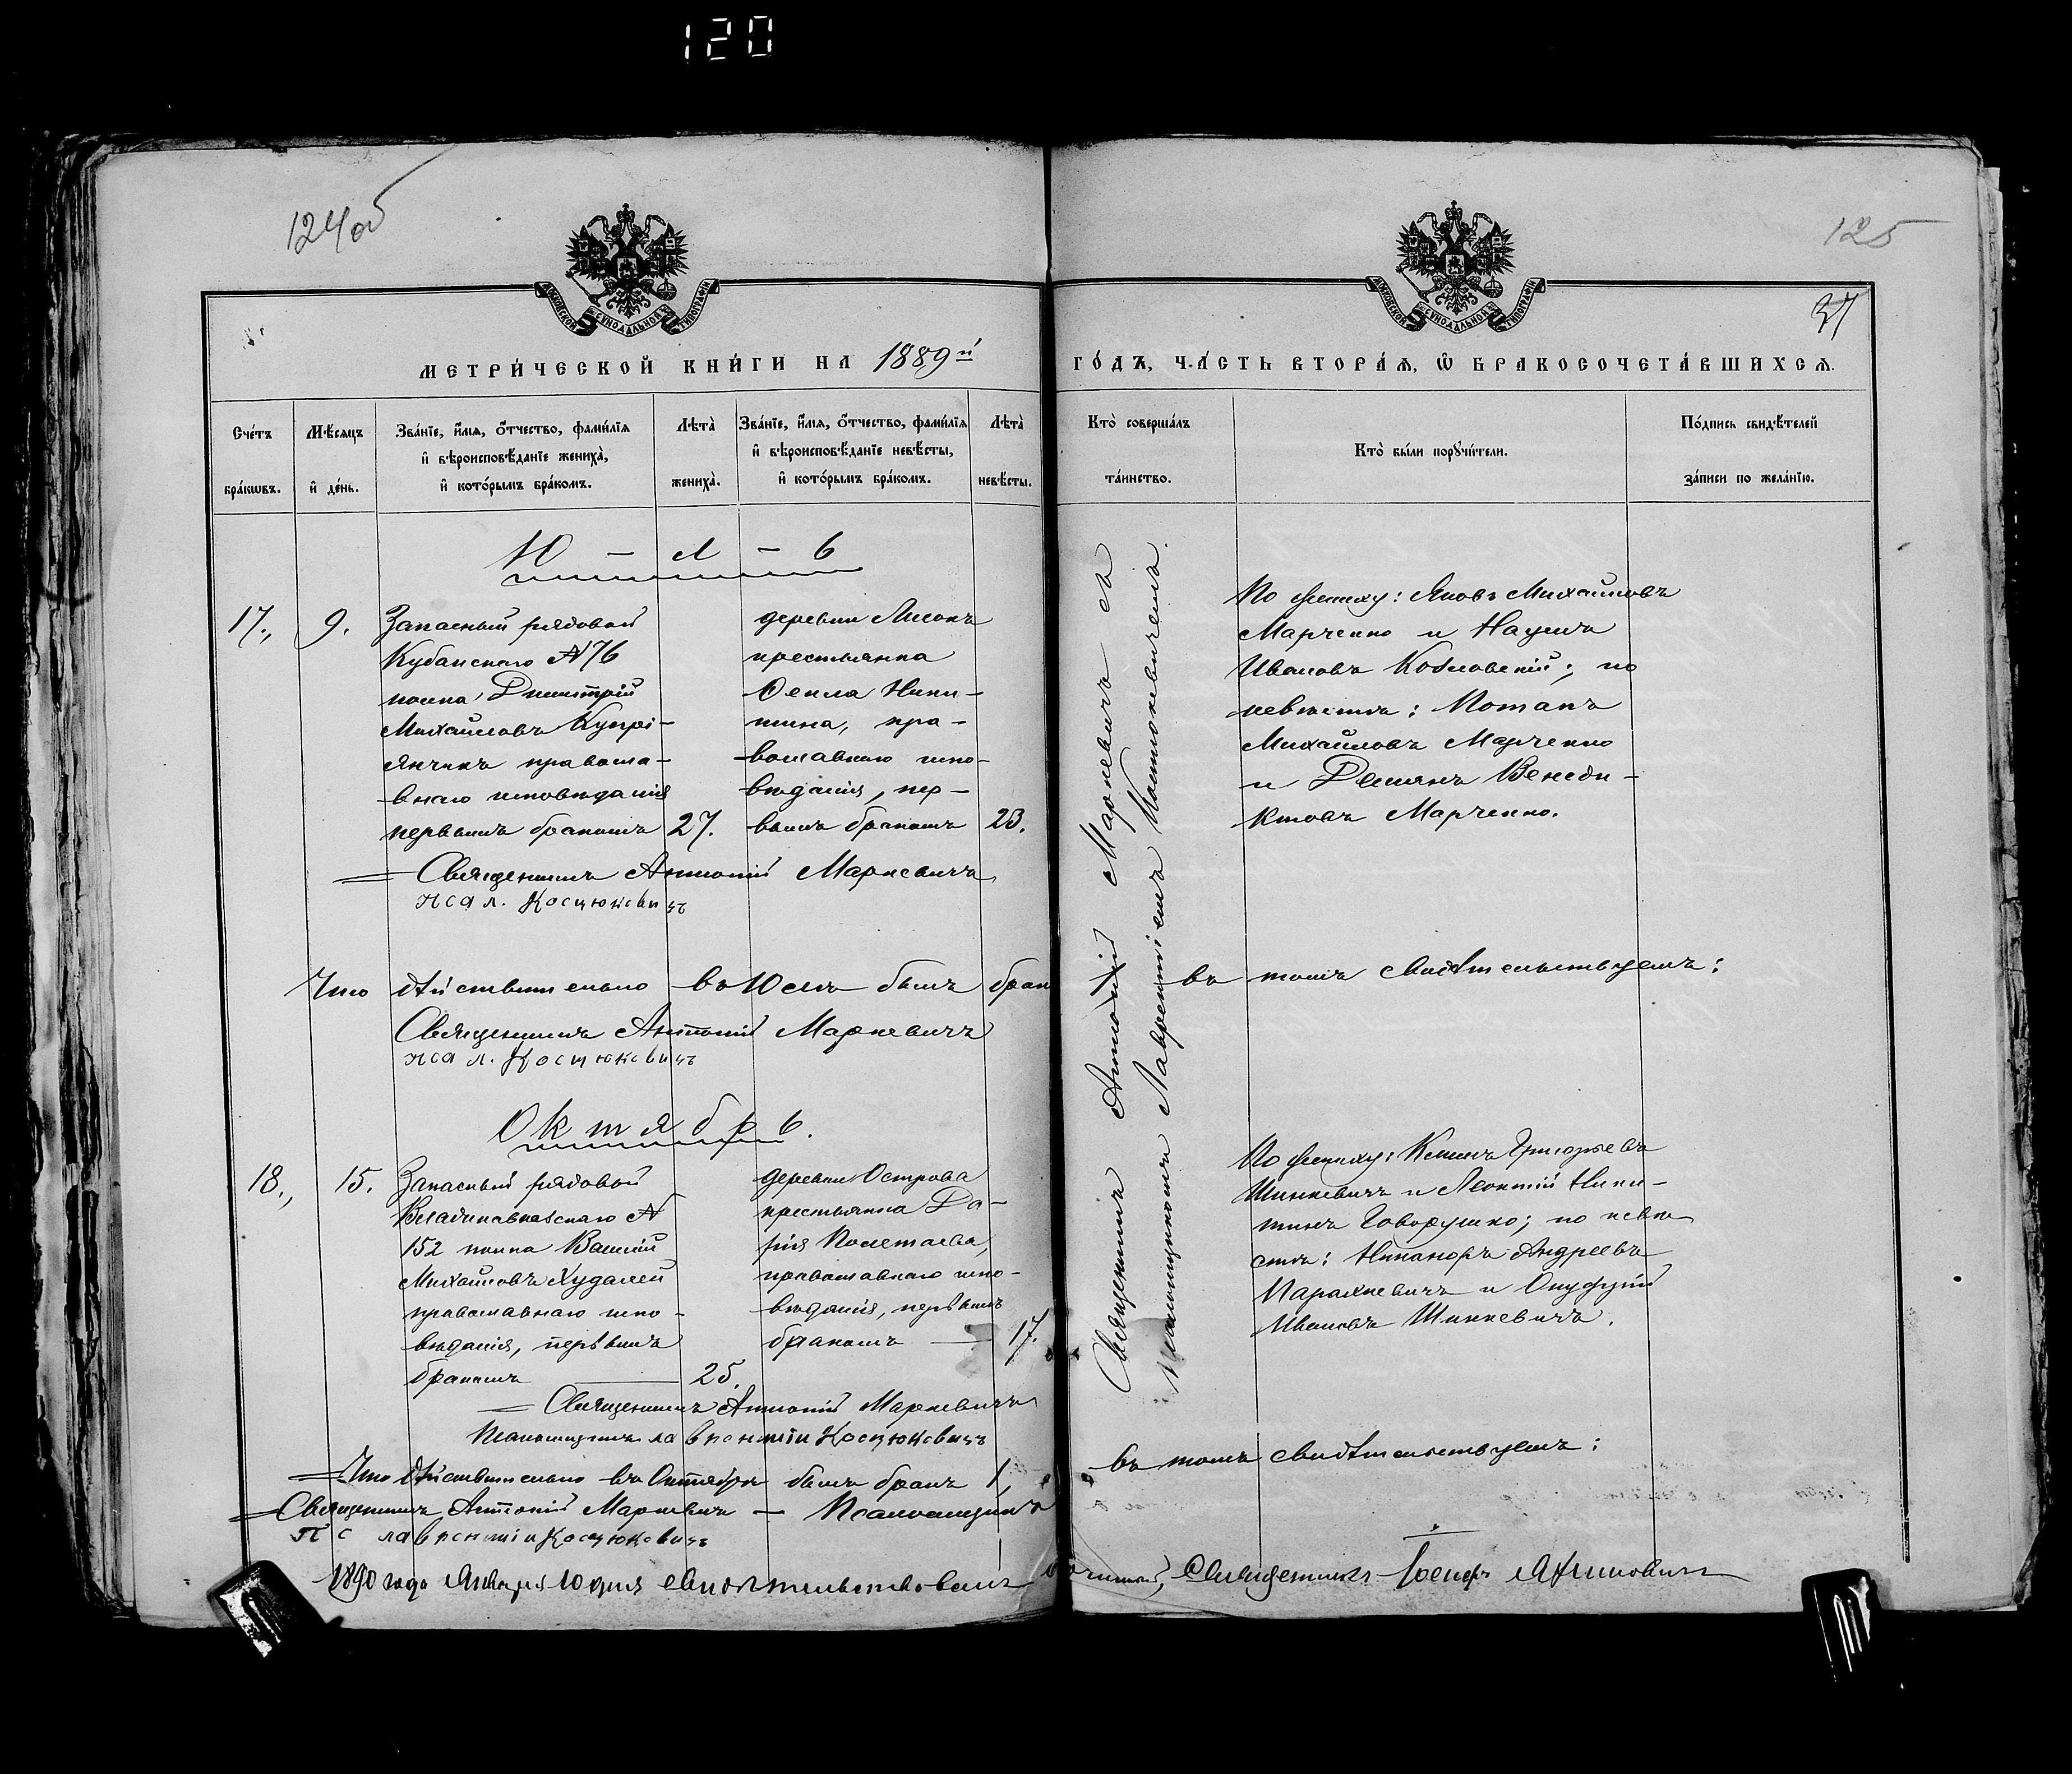 120
124об
125
37
МОСКОВСКОЙ СѴНОДАЛЬНОЙ ТИПОГРАФІИ
МОСКОВСКОЙ СѴНОДАЛЬНОЙ ТИПОГРАФІИ
МЕТРИ́ЧЕСКОЙ КНИ́ГИ НА 1889й ГО́ДЪ, ЧА́СТЬ ВТОРА́Ѧ, Ѡ҆ БРАКОСОЧЕТА́ВШИХСѦ.
Сче́тъ
бра́кѡвъ.
Мѣ́сяцъ
и҆ де́нь.
Зва́нїе, и҆́мѧ, ѻ҆́тчество, фами́лїѧ
и҆ вѣроисповѣ́данїе жениха̀,
и҆ кото́рымъ бра́комъ.
Лѣта̀
жениха̀.
Зва́нїе, и҆́мѧ, ѻ҆́тчество, фами́лїѧ
и҆ вѣроисповѣ́данїе невѣ́сты,
и҆ кото́рымъ бра́комъ.
Лѣта̀
невѣ́сты.
Кто̀ соверша́лъ
та́инство.
Кто̀ бы́ли порꙋчи́тели.
По́дпись свидѣ́телей
за́писи по жела́нїю.
Ю - л - ь
17.,
9.
Запасный рядовой
Кубанскаго №76
полка Димитрій
Михайловъ Купрі-
янчикъ правосла-
внаго исповѣданія
первымъ бракомъ
27.
деревни
крестьянка
Ники-
тина, пра-
вославнаго испо-
вѣданія, пер-
вымъ бракомъ
23.
Священникъ Антоній Маркевичъ съ
псаломщикомъ Лаврентіемъ Костюкевичемъ.
По жениху: Яковъ Михайловъ
Марченко и Наумъ
Ивановъ Козловскій; по
невѣстѣ: Потапъ
Михайловъ Марченко
и Деміянъ Венеди-
ктовъ Марченко.
Священникъ Антоній Маркевичъ
псал. Костюкевичъ
Что дѣйствительно въ Юлѣ былъ бракъ въ томъ свидѣтельствуемъ:
Священникъ Антоній Маркевичъ
псал. Костюкевичъ
Октябрь.
18.,
15.
Запасный рядовой
Владикавказскаго №
152 полка Василій
Михайловъ Худалей
православнаго испо-
вѣданія, первымъ
бракомъ
25.
деревни Острова
крестьянка Да-
рія Полетаева,
православнаго испо-
вѣданія, первымъ
бракомъ
17.
По жениху: Григорьевъ
Шинкевичъ и Леонтій Ники-
тинъ Говорушко; по невѣ
стѣ: Никаноръ Андреевъ
и Онуфрій
Ивановъ Шинкевичъ.
Священникъ Антоній Маркевичъ
Псаломщикъ Лаврентій Костюкевичъ
Что дѣйствительно въ Октябрѣ былъ бракъ 1, въ томъ свидѣтельствуемъ:
Священникъ Антоній Маркевичъ — Псаломщикъ
Лаврентій Костюкевичъ
1890 года Января 10 дня свидѣтельствовалъ Священникъ Іосифъ